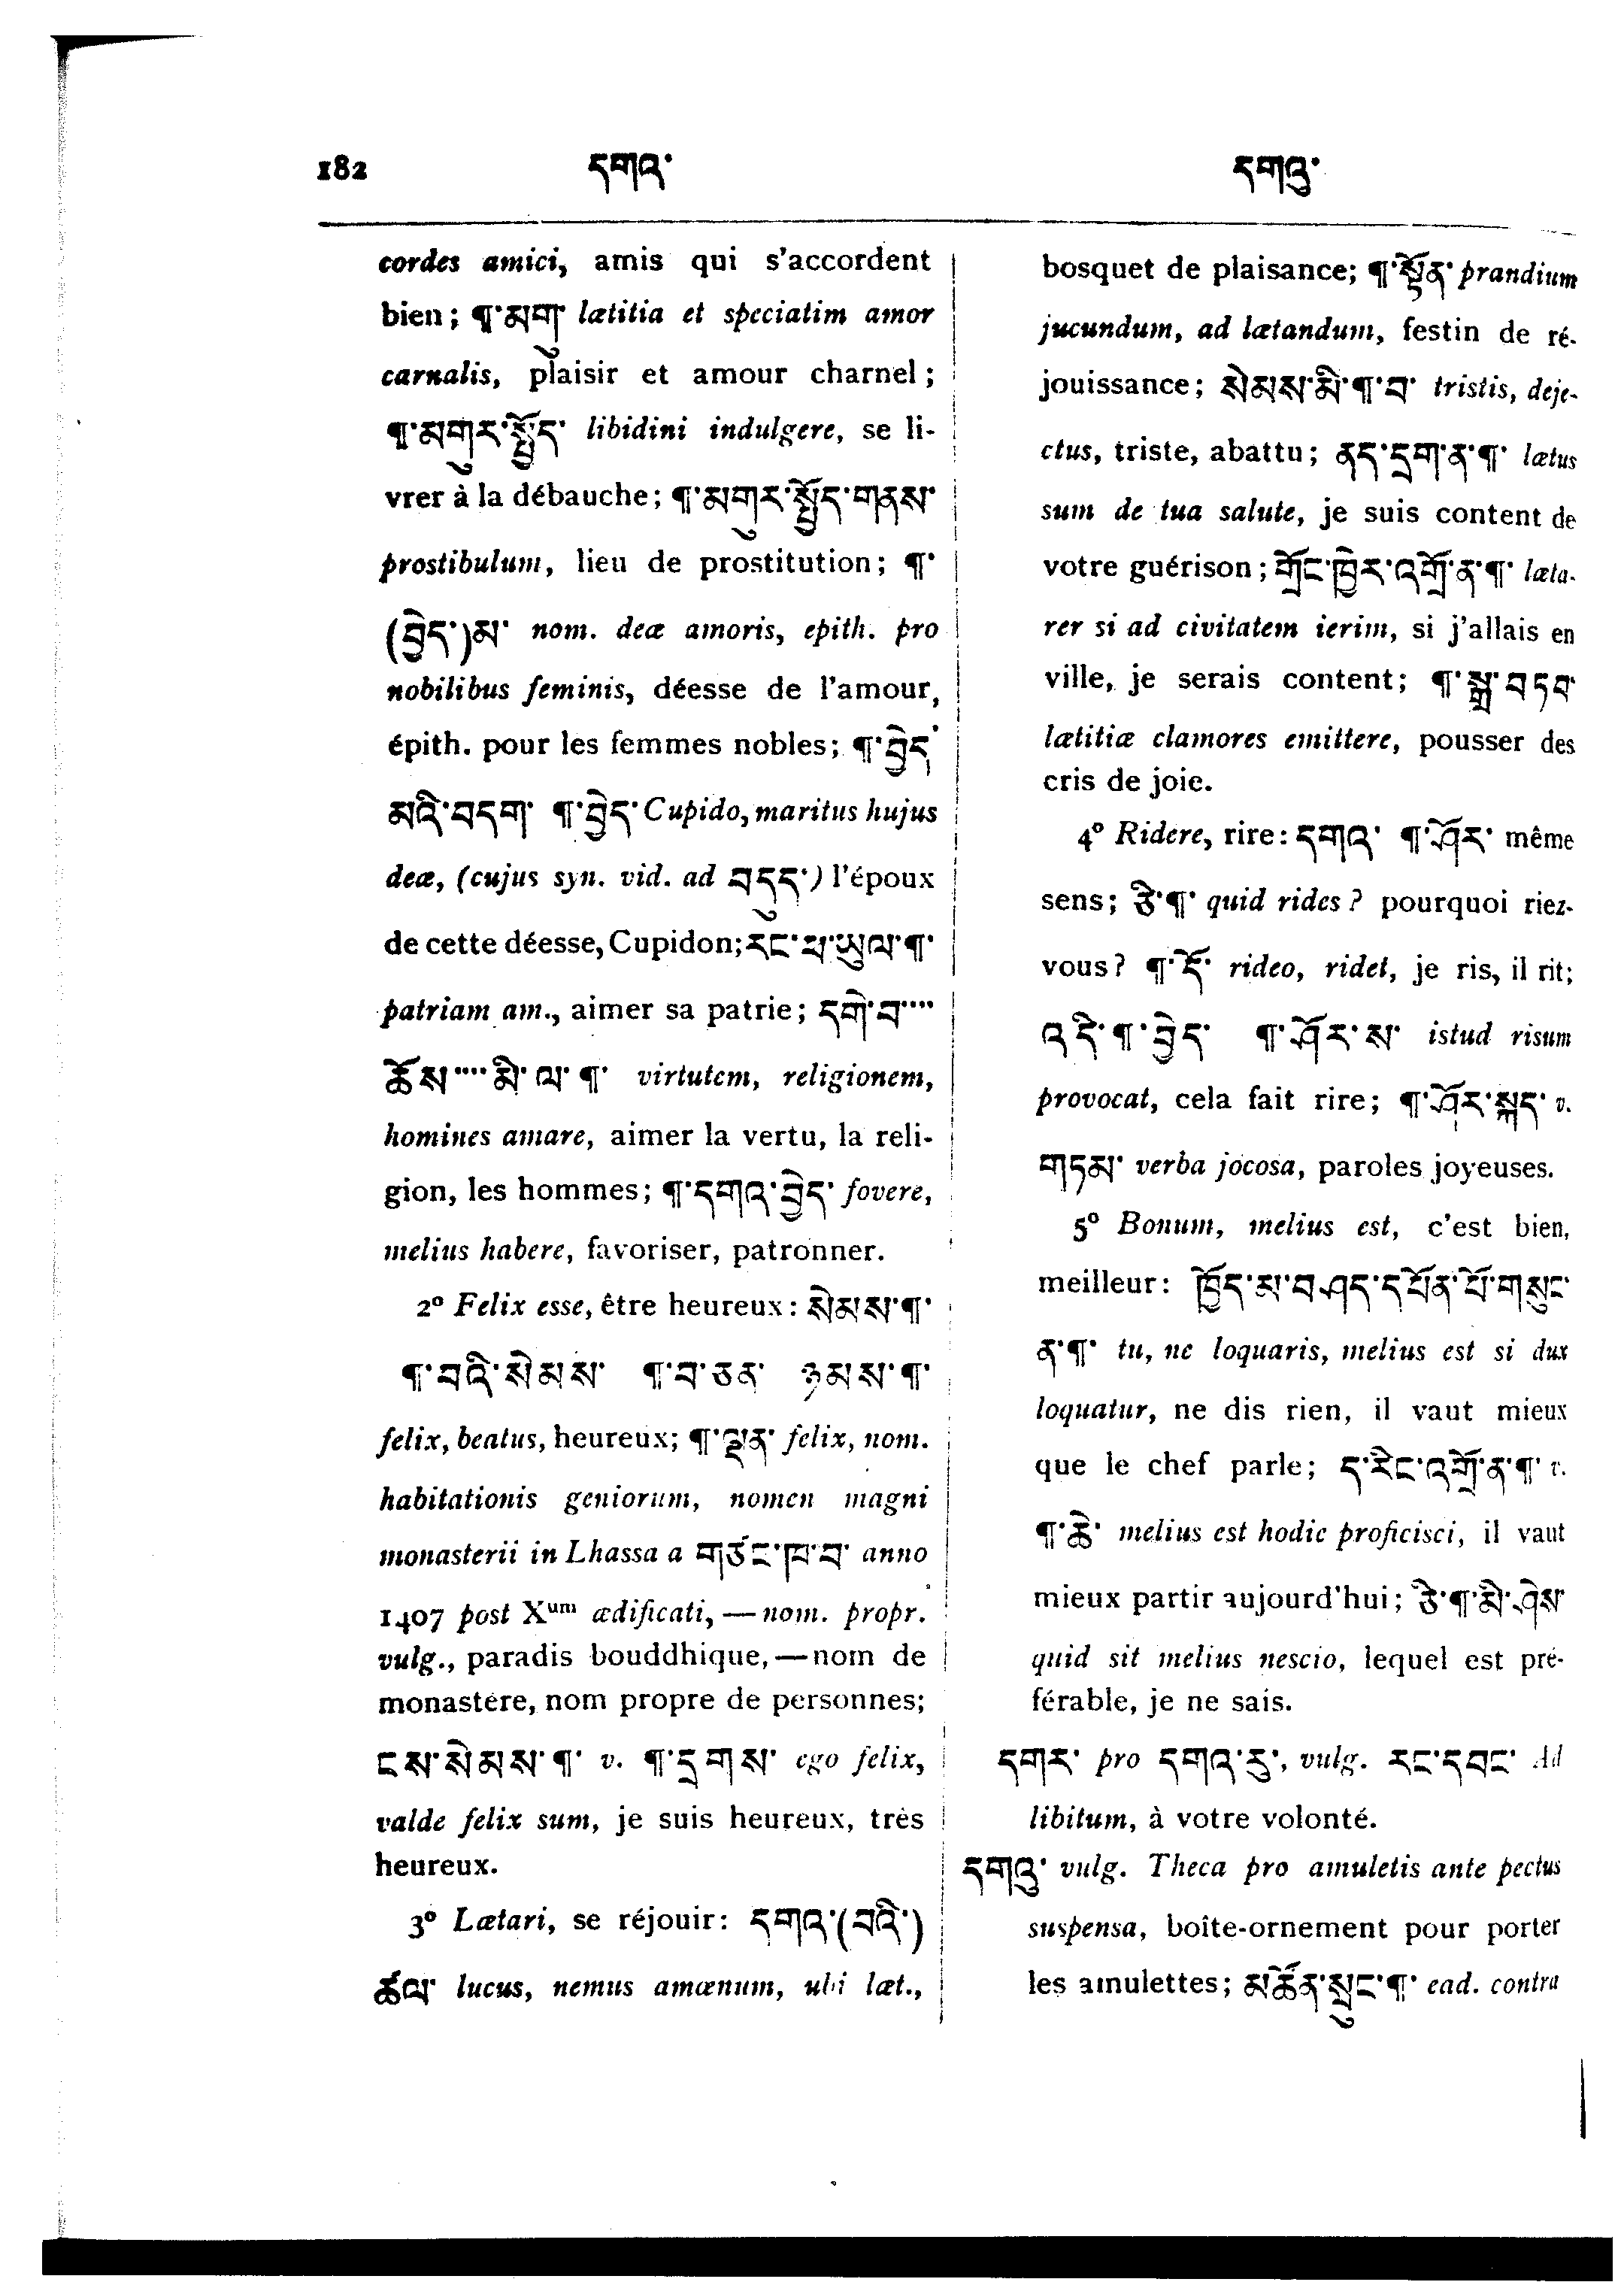 182 དགའ་ དགའུ་
cordes amici, amis qui s'accordent
bien; ¶་མགུ་ lætitia et speciatim amor
carnalis, plaisir et amour charnel;
¶་མགུར་སྤྱོད་ libidini indulgere, se li-
vrer à la débauche; ¶་མགུར་སྤྱོད་གནས་
prostibulum, lieu de prostitution; ¶་
(བྱེད་)མ་ nom. deæ amoris, epith. pro
nobilibus feminis, déesse de l'amour,
épith. pour les femmes nobles; ¶་བྱེད་
མའི་བདག་ ¶་བྱེད་ Cupido, maritus hujus
deæ, (cujus syn. vid. ad བདུད་) l'époux
de cette déesse, Cupidon; རང་ཕ་ཡུལ་¶་
patriam am., aimer sa patrie; དགེ་བ་....
ཆོས་....མི་ལ་¶་ virtutem, religionem,
homines amare, aimer la vertu, la reli-
gion, les hommes; ¶་དགའ་བྱེད་ fovere,
melius habere, favoriser, patronner.
2º Felix esse, être heureux: སེམས་¶་
¶་བའི་སེམས་ ¶་བ་ཅན་ ཉམས་¶་
felix, beatus, heureux; ¶་ལྡན་ felix, nom.
habitationis geniorum, nomen magni
monasterii in Lhassa a གཙང་ཁ་བ་ anno
1407 post Xum ædificati, — nom. propr.
vulg., paradis bouddhique, — nom de
monastère, nom propre de personnes;
ངས་སེམས་¶་ v. ¶་དྲགས་ ego felix,
valde felix sum, je suis heureux, très
heureux.
3º Lætari, se réjouir: དགའ་(བའི་)
ཚལ་ lucus, nemus amœnum, ubi læt.,
bosquet de plaisance; ¶་སྟོན་ prandium
jucundum, ad lætandum, festin de ré-
jouissance; སེམས་མི་¶་བ་ tristis, deje-
ctus, triste, abattu; ནད་དྲག་ན་¶་ lætus
sum de tua salute, je suis content de
votre guérison; གྲོང་ཁྱེར་འགྲོ་ན་¶་ læta-
rer si ad civitatem ierim, si j'allais en
ville, je serais content; ¶་སྒྲ་བཏབ་
lætitiæ clamores emittere, pousser des
cris de joie.
4º Ridere, rire: དགའ་ ¶་ཤོར་ même
sens; ཅི་¶་ quid rides? pourquoi riez-
vous? ¶་དོ་ rideo, ridet, je ris, il rit;
འདི་¶་བྱེད་ ¶་ཤོར་ས་ istud risum
provocat, cela fait rire; ¶་ཤོར་སྐད་ v.
གཏམ་ verba jocosa, paroles joyeuses.
5º Bonum, melius est, c'est bien,
meilleur: ཁྱོད་མ་བཤད་དཔོན་པོ་གསུང་
ན་¶་ tu, ne loquaris, melius est si dux
loquatur, ne dis rien, il vaut mieux
que le chef parle; ད་རིང་འགྲོ་ན་¶་ v.
¶་ཆེ་ melius est hodie proficisci, il vaut
mieux partir aujourd'hui; ཅི་¶་མི་ཤེས་
quid sit melius nescio, lequel est pré-
férable, je ne sais.
དགར་ pro དགའ་རུ་, vulg. རང་དབང་ Ad
libitum, à votre volonté.
དགའུ་ vulg. Theca pro amuletis ante pectus
suspensa, boîte-ornement pour porter
les amulettes; མཚོན་སྲུང་¶་ ead. contra